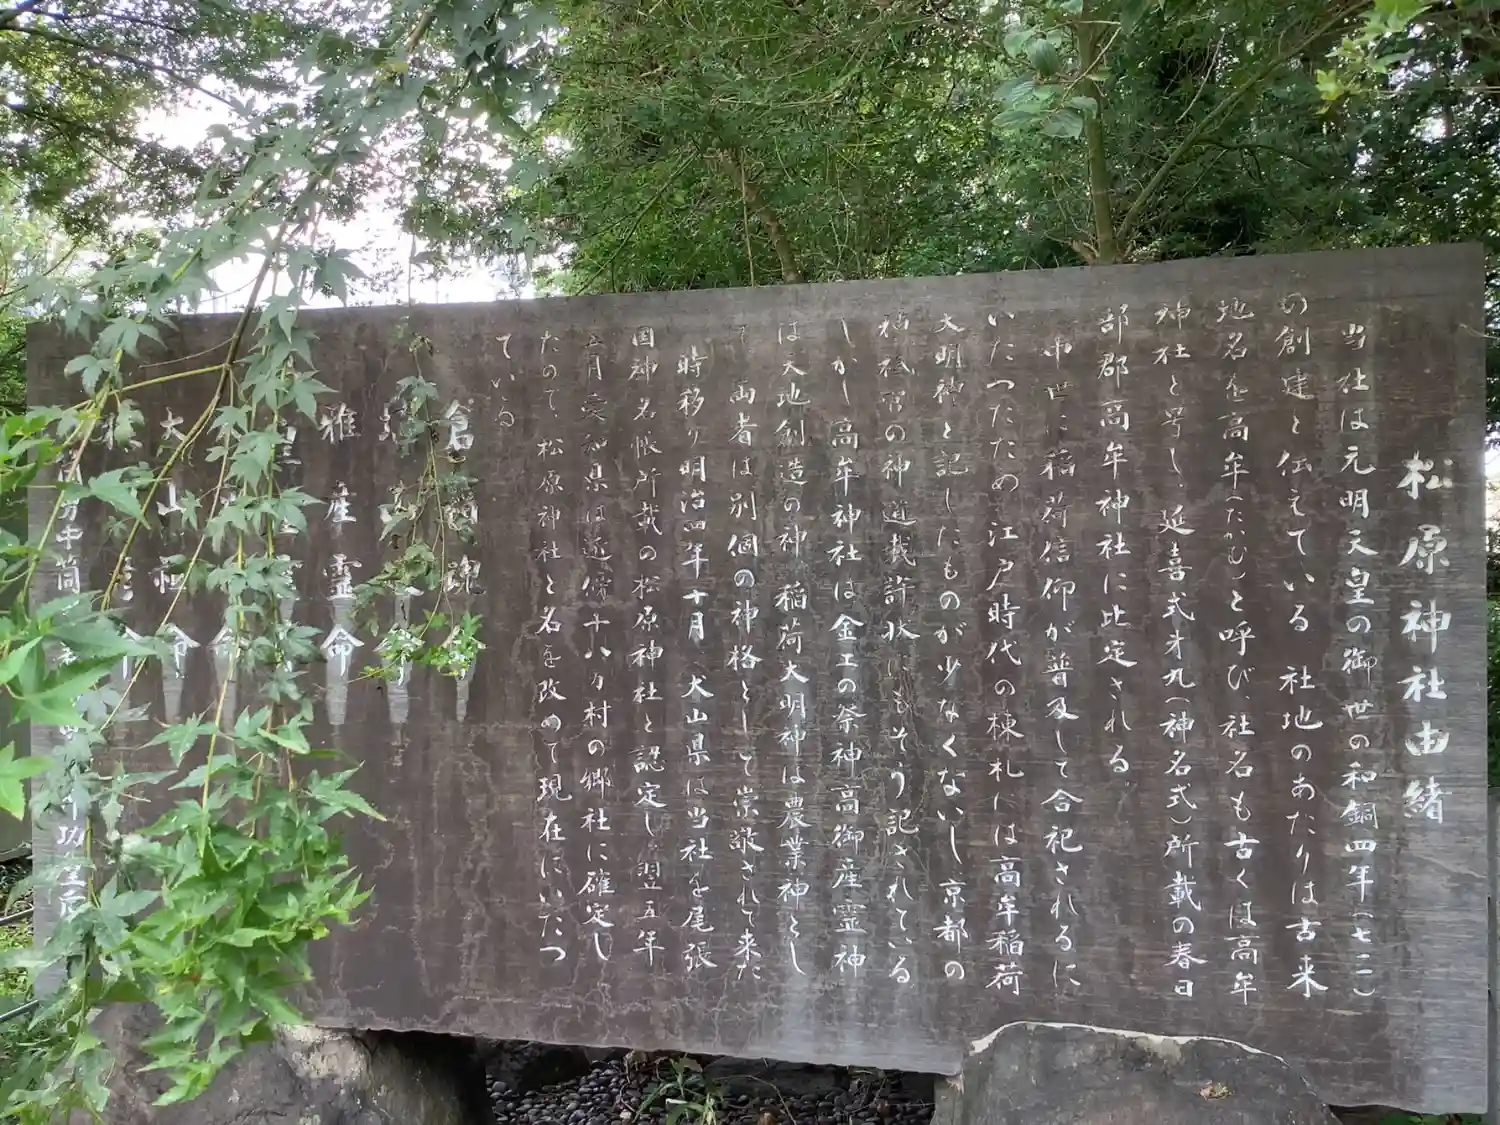 松原神社由緒
当社は元明天皇の御世の和銅四年(七一一)
の創建と伝えている 社地のあたりは古来
地名を高牟(たかむ)と呼び、社名も古くは高牟
神社と号し、延喜式第九(神名式)所載の春日
部郡高牟神社に比定される。
中世に稲荷信仰が普及して合祀されるに
いたつたため 江戸時代の棟札には高牟稲荷
大明神と記したものが少なくないし 京都の
の神道裁許状にもそう記されている
しかし 高牟神社は金工の祭神高御産霊神
は天地創造の神 稲荷大明神は農業神とし
て 両者は別個の神格として崇敬されて来た
時移り明治四年十月、犬山県は当社を尾張
国神名帳所載の松原神社と認定し 翌五年
五月愛知県は近傍十八カ村の郷社に確定し
たので、松原神社と名を改めて現在にいたつ
ている
倉 魂命
命
雅産霊命
命
大山 命